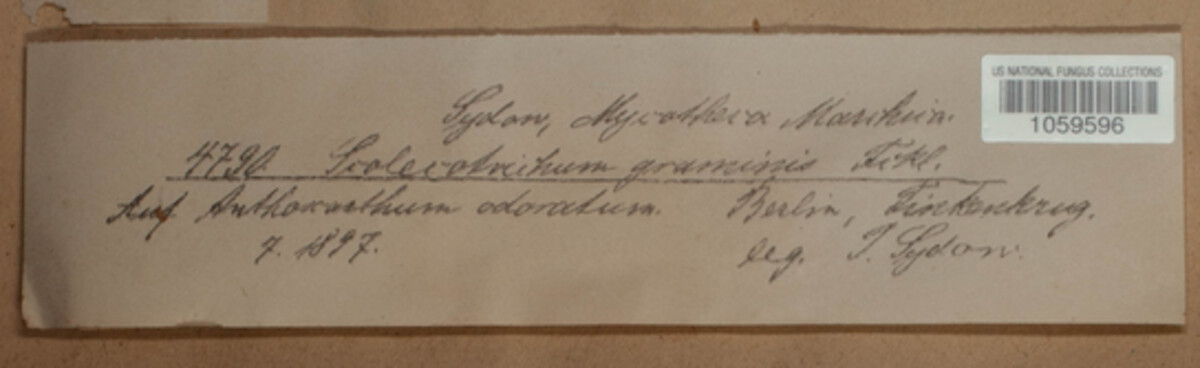 US NATIONAL FUNGUS COLLECTIONS
1059596
Sydow, Mycotheca Marchica.
4790 Scolecotrichum graminis Fckl.
Auf Anthoxanthum odoratum. Berlin, Finkenkrug.
7. 1897. leg. P. Sydow.